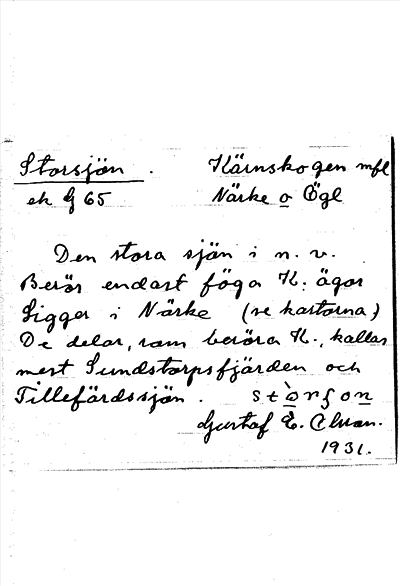 Storsjön. Kärnskogen mfl
ek G 65 Närke o Ögl
Den stora sjön i n. v.
Berör endast föga K: ägor
Ligger i Närke (se kartorna)
De delar, som beröra K., kallas
mest Sundstorpsfjärden och
Tillefärdssjön.
Gustaf E.
1931.